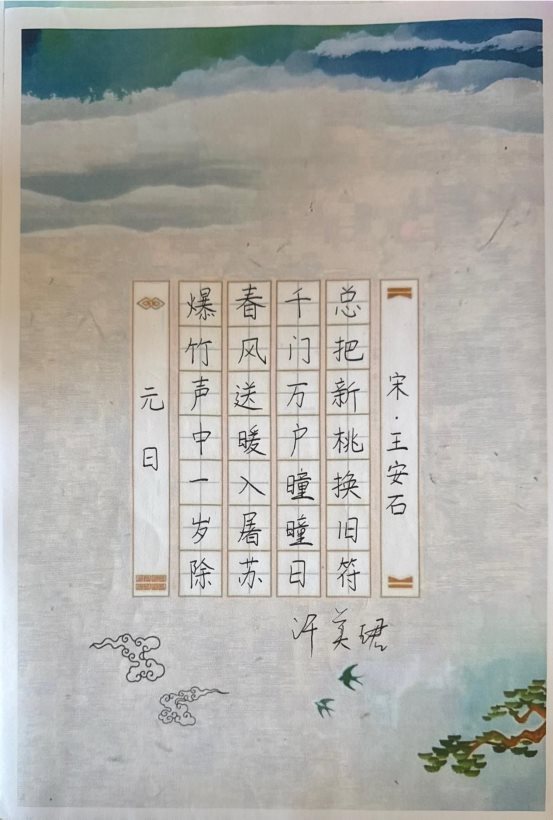 元日
爆竹声中一岁除
春风送暖入屠苏
千门万户曈曈日
总把新桃换旧符
宋·王安石
许美珺